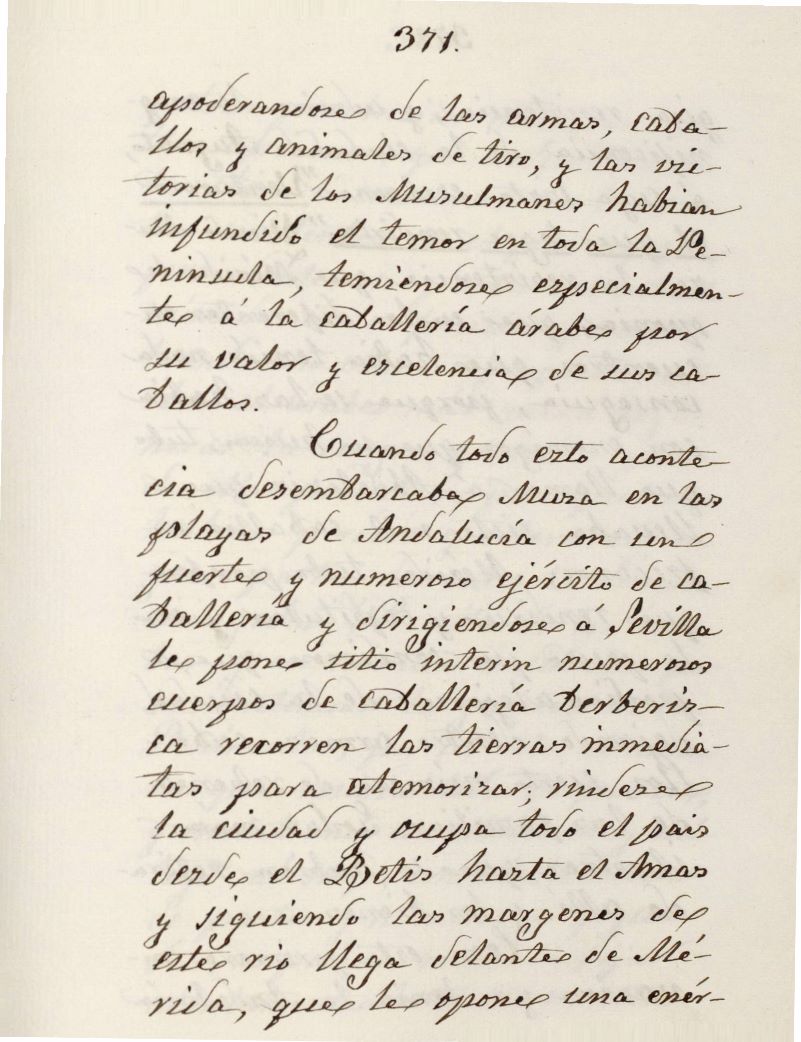 371.
apoderandose de las armas, caba-
llos y animales de tiro, y las vic-
torias de los Musulmanes habian
infundido el temor en toda la Pe-
ninsula, temiendose especialmen-
te á la caballería árabe por
su valor y escelencia de sus ca-
ballos.
Cuando todo esto aconte-
cia desembarcaba Muza en las
playas de Andalucía con un
fuerte y numeroso ejército de ca-
ballería y dirigiendose á Sevilla
le pone sitio interin numerosos
cuerpos de caballería berberis-
ca recorren las tierras inmedia-
tas para atemorizar; rindese
la ciudad y ocupa todo el pais
desde el Betis hasta el Amas
y siguiendo las margenes de
este rio llega delante de Mé-
rida, que le opone una enér-